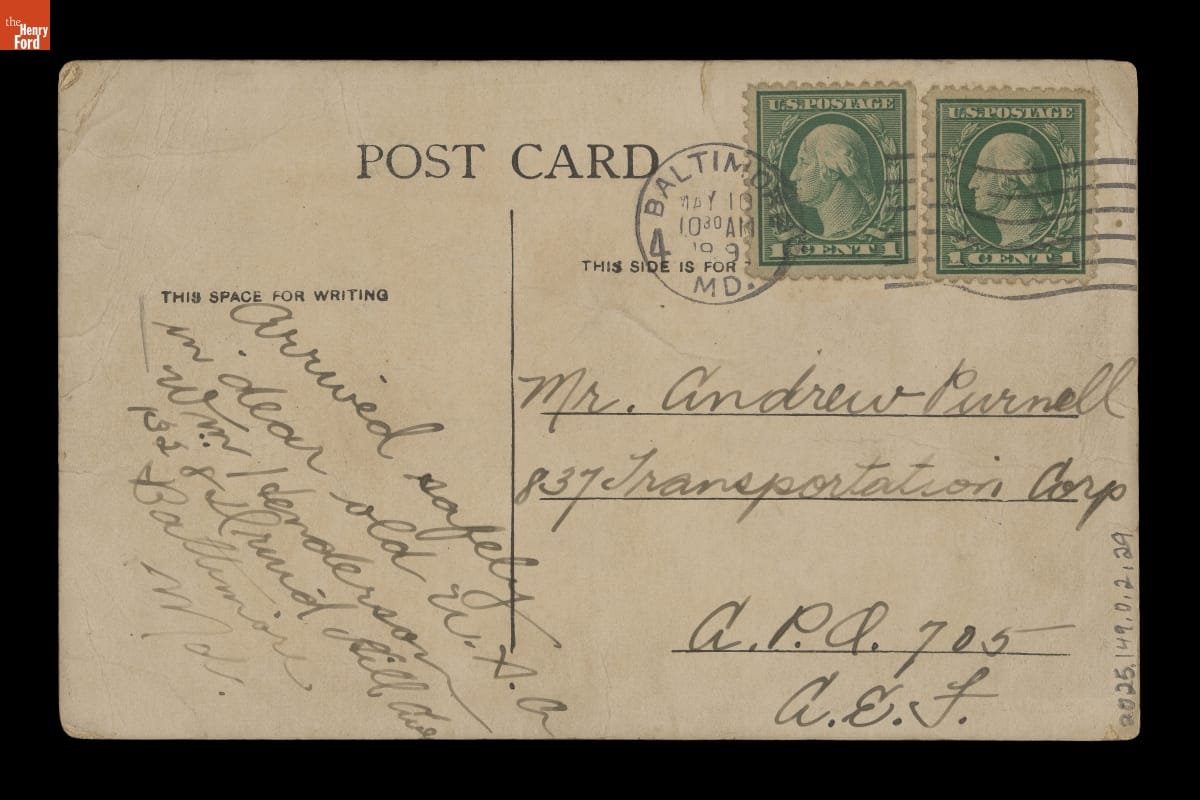 the
Henry
Ford
POST CARD
U.S. POSTAGE
1 CENT 1
U.S. POSTAGE
1 CENT 1
BALTIMORE
MAY 10
10 30 AM
4
MD.
THIS SIDE IS FOR
THIS SPACE FOR WRITING
Arrived safely
in dear old U.S.A
Wm Henderson
Druid Hill Ave
Baltimore
Md.
Mr. Andrew Purnell
837 Transportation Corp
A.P.O. 705
A.E.F.
2025.149.0.2.29